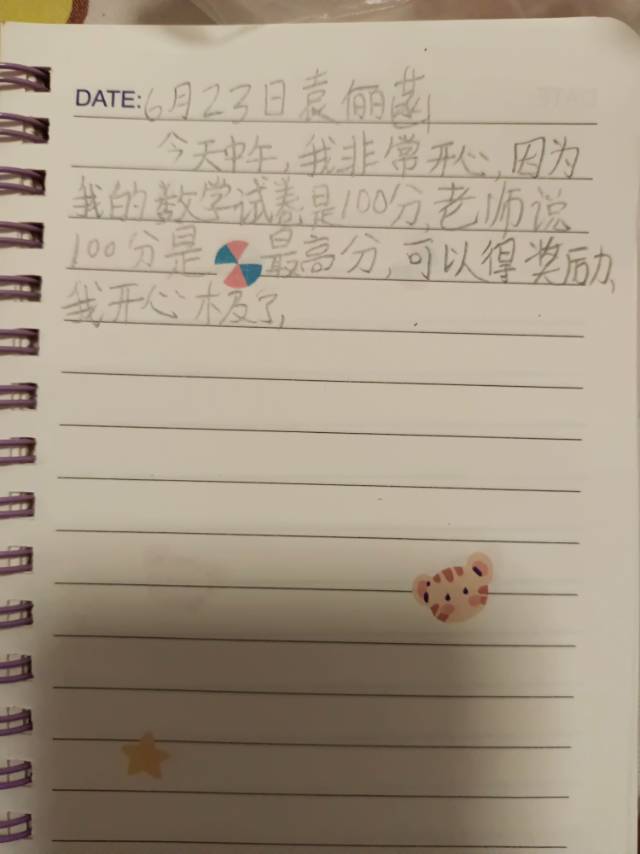 DATE: 6月23日袁俪菡
今天中午,我非常开心,因为
我的数学试卷是100分,老师说
100分是最高分,可以得奖励,
我开心极了,